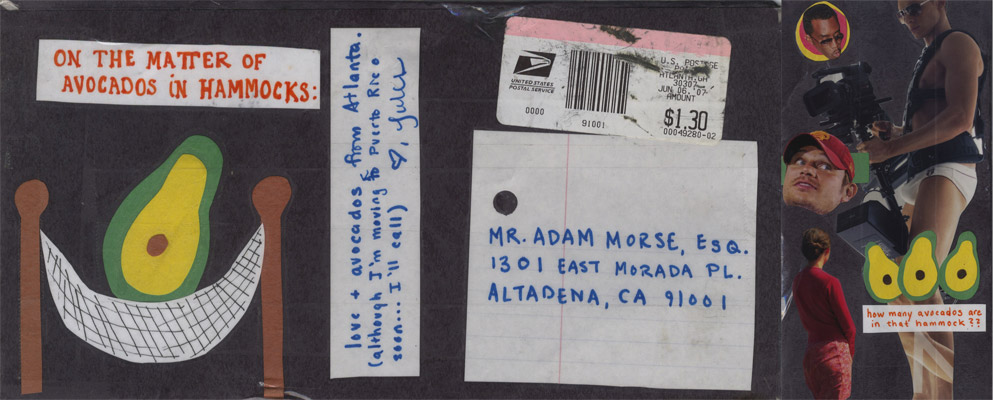 ON THE MATTER OF
AVOCADOS iN HAMMOCKS:
love + avocados from Atlanta.
(although I'm moving to Puerto Rico
soon... I'll call)
UNITED STATES
POSTAL SERVICE
0000
91001
U.S. POSTAGE
ATLANTA, GA
30307
JUN 06, 07
AMOUNT
$1.30
00049280-02
MR. ADAM MORSE, ESQ.
1301 EAST MORADA PL.
ALTADENA, CA 91001
how many avocados are
in that hammock??